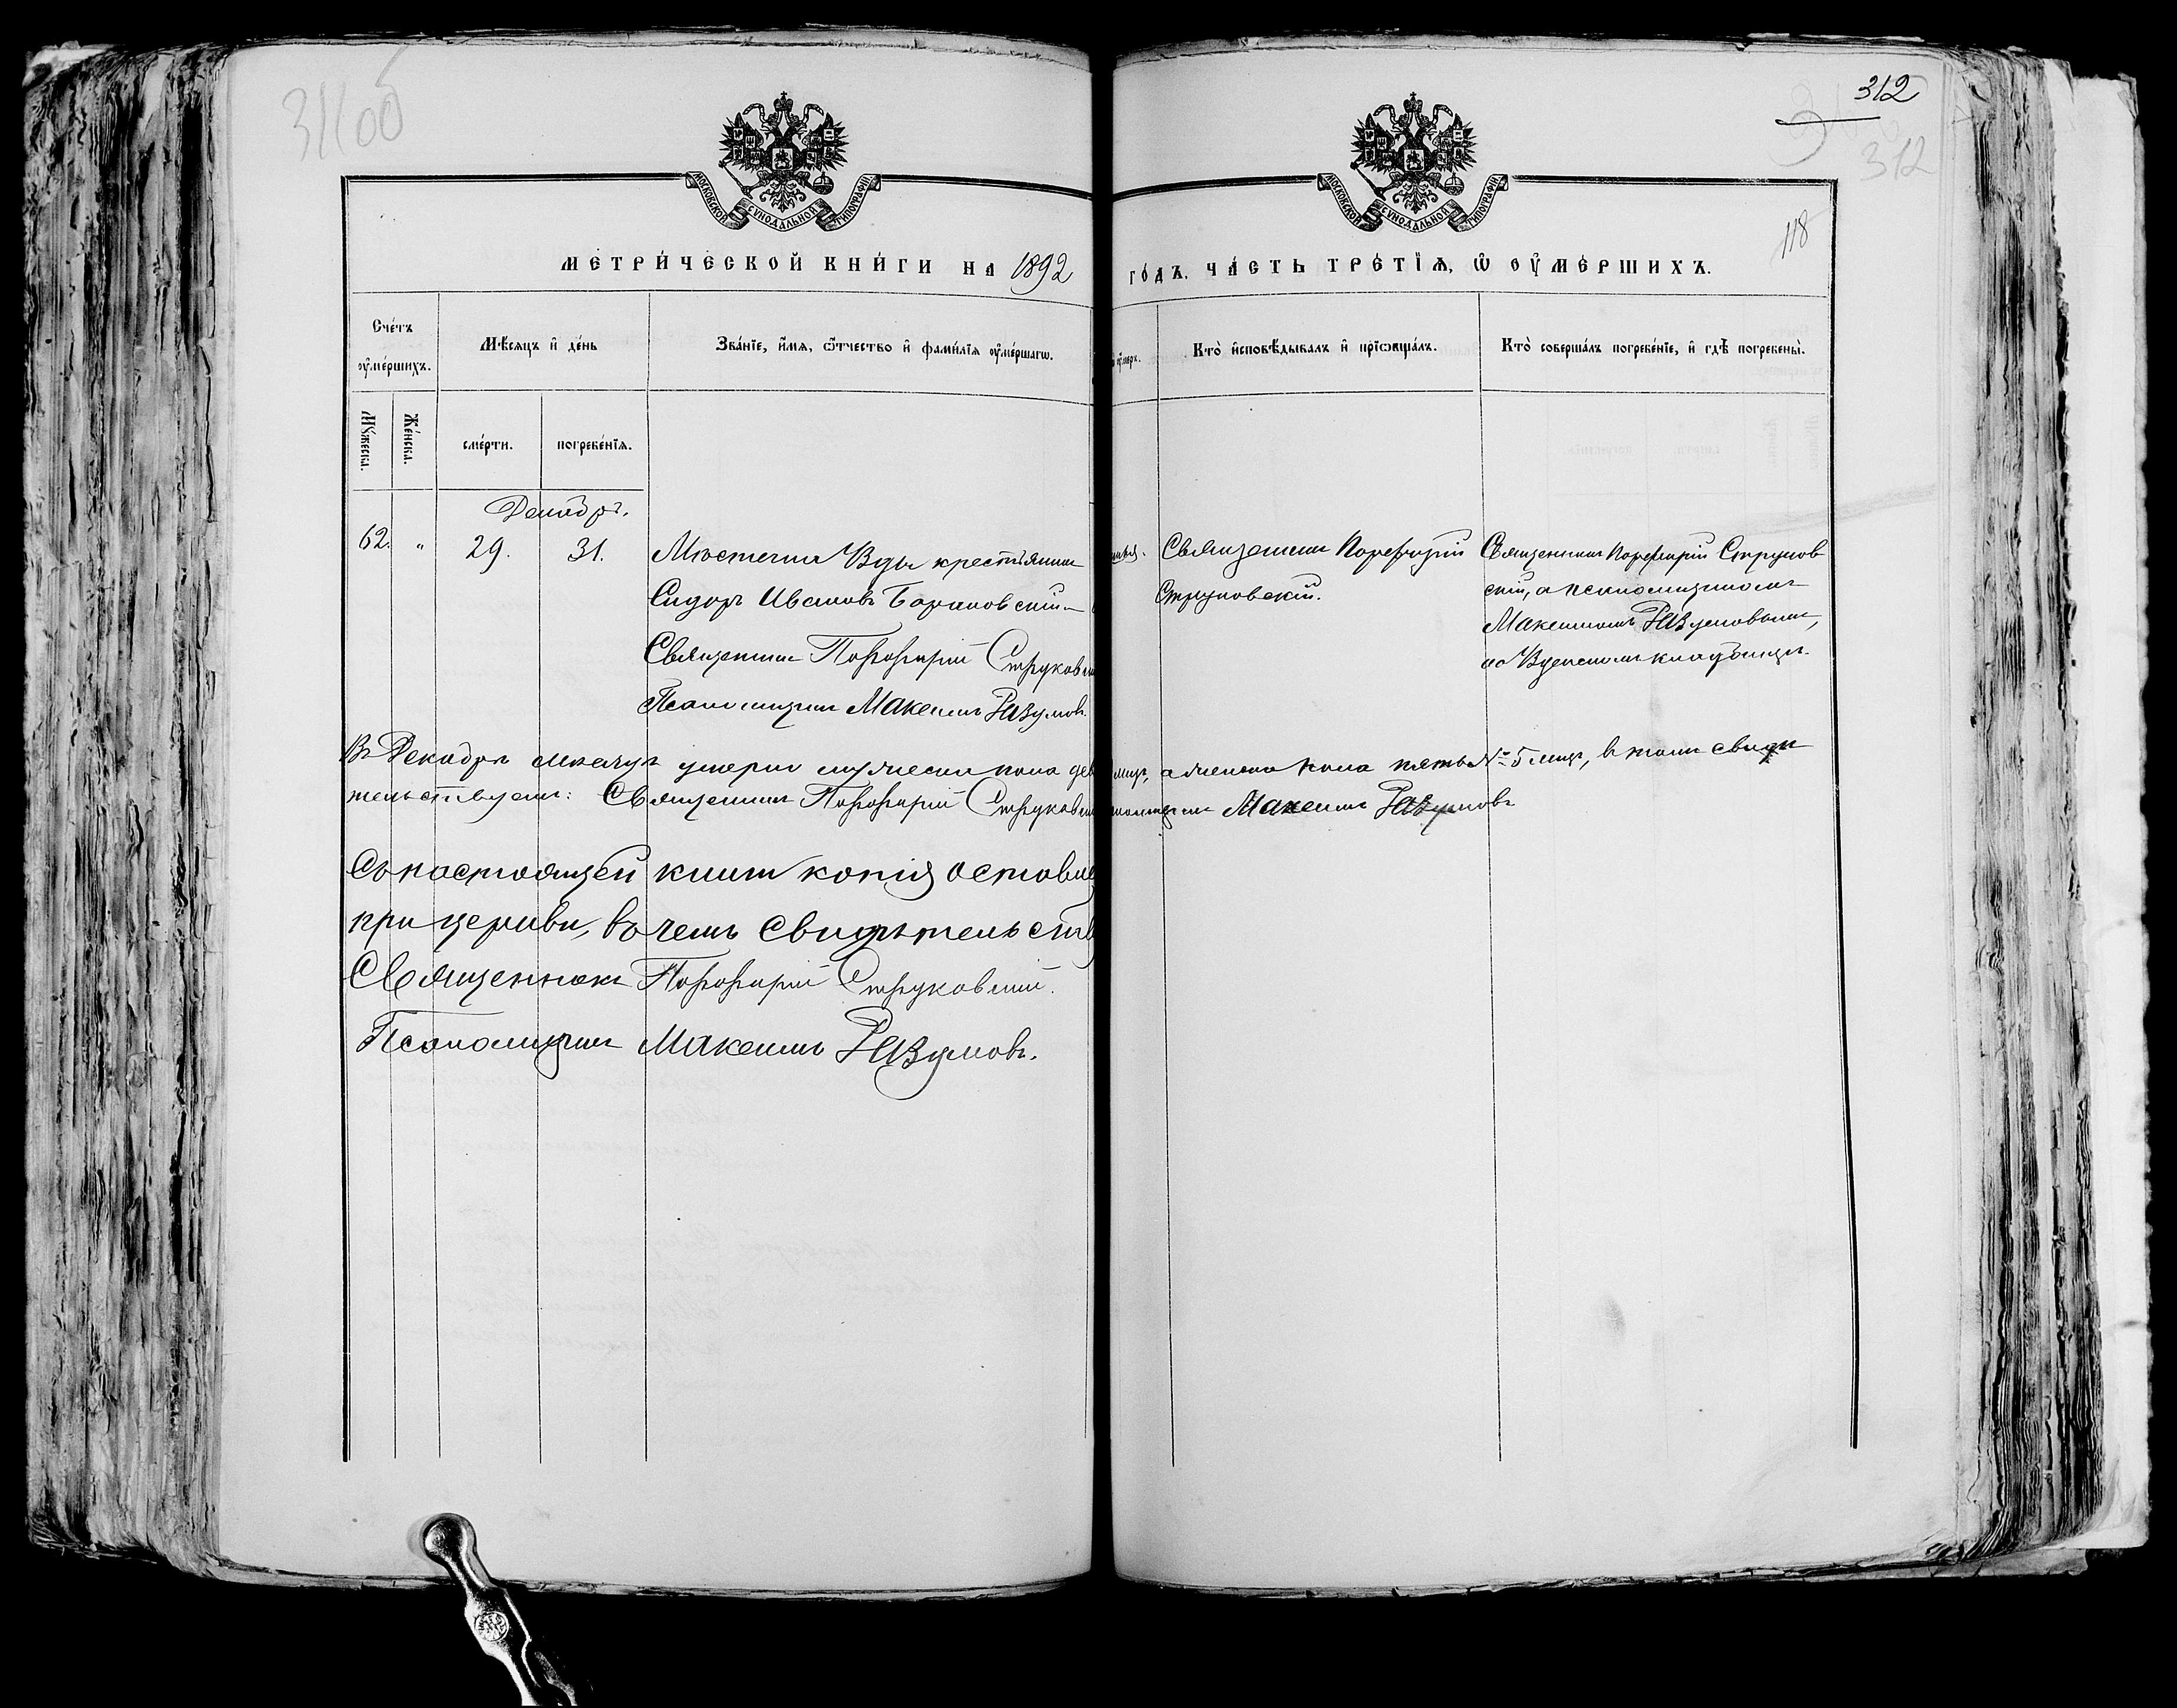 311 об
312
312
118
МОСКОВСКОЙ СУНОДАЛЬНОЙ ТИПОГРАФІИ
МОСКОВСКОЙ СУНОДАЛЬНОЙ ТИПОГРАФІИ
МЕТРИ́ЧЕСКОЙ КНИ́ГИ НА 1892 ГО́ДЪ, ЧА́СТЬ ТРЕ́ТІѦ, Ѡ ОУМЕ́РШИХЪ.
Сче́тъ оуме́ршихъ.
Мѣ́сѧцъ и де́нь
Зва́нїе, и́мѧ, ѻ҆́тчество и фами́лїѧ оуме́ршагѡ.
Кто̀ и҆сповѣ́дывалъ и прїѡбща́лъ.
Кто̀ соверша́лъ погребе́нїе, и гдѣ̀ погребены̀.
Мꙋ́жеска.
Же́нска.
сме́рти.
погребе́нїѧ.
Декабрь.
62. " 29. 31. Мѣстечка Уды крестьянинъ
Сидоръ Ивановъ Барановскій
Священникъ Порфирій Струковскій
Псаломщикъ Максимъ Разумовъ.
Священникъ Порфирій
Струковскій.
Священникъ Порфирій Струков
скій, съ псаломщикомъ
Максимомъ Разумовымъ,
на кладбищѣ.
Въ Декабрѣ мѣсяцѣ умерло мужеска пола а женска пола пять № 5 лицъ, въ томъ свидѣ
тельствуемъ: Священникъ Порфирій Струковскій Максимъ Разумовъ
Съ настоящей книги копія оставлена
при церкви, въ чемъ свидѣтельств
Священникъ Порфирій Струковскій.
Псаломщикъ Максимъ Разумовъ.